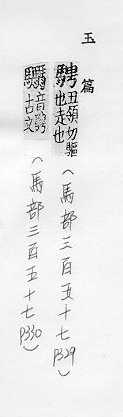 玉篇
騁丑領切驅
也走也
(馬部三百五十七P329)
音騁
古文
(馬部三百五十七P330)